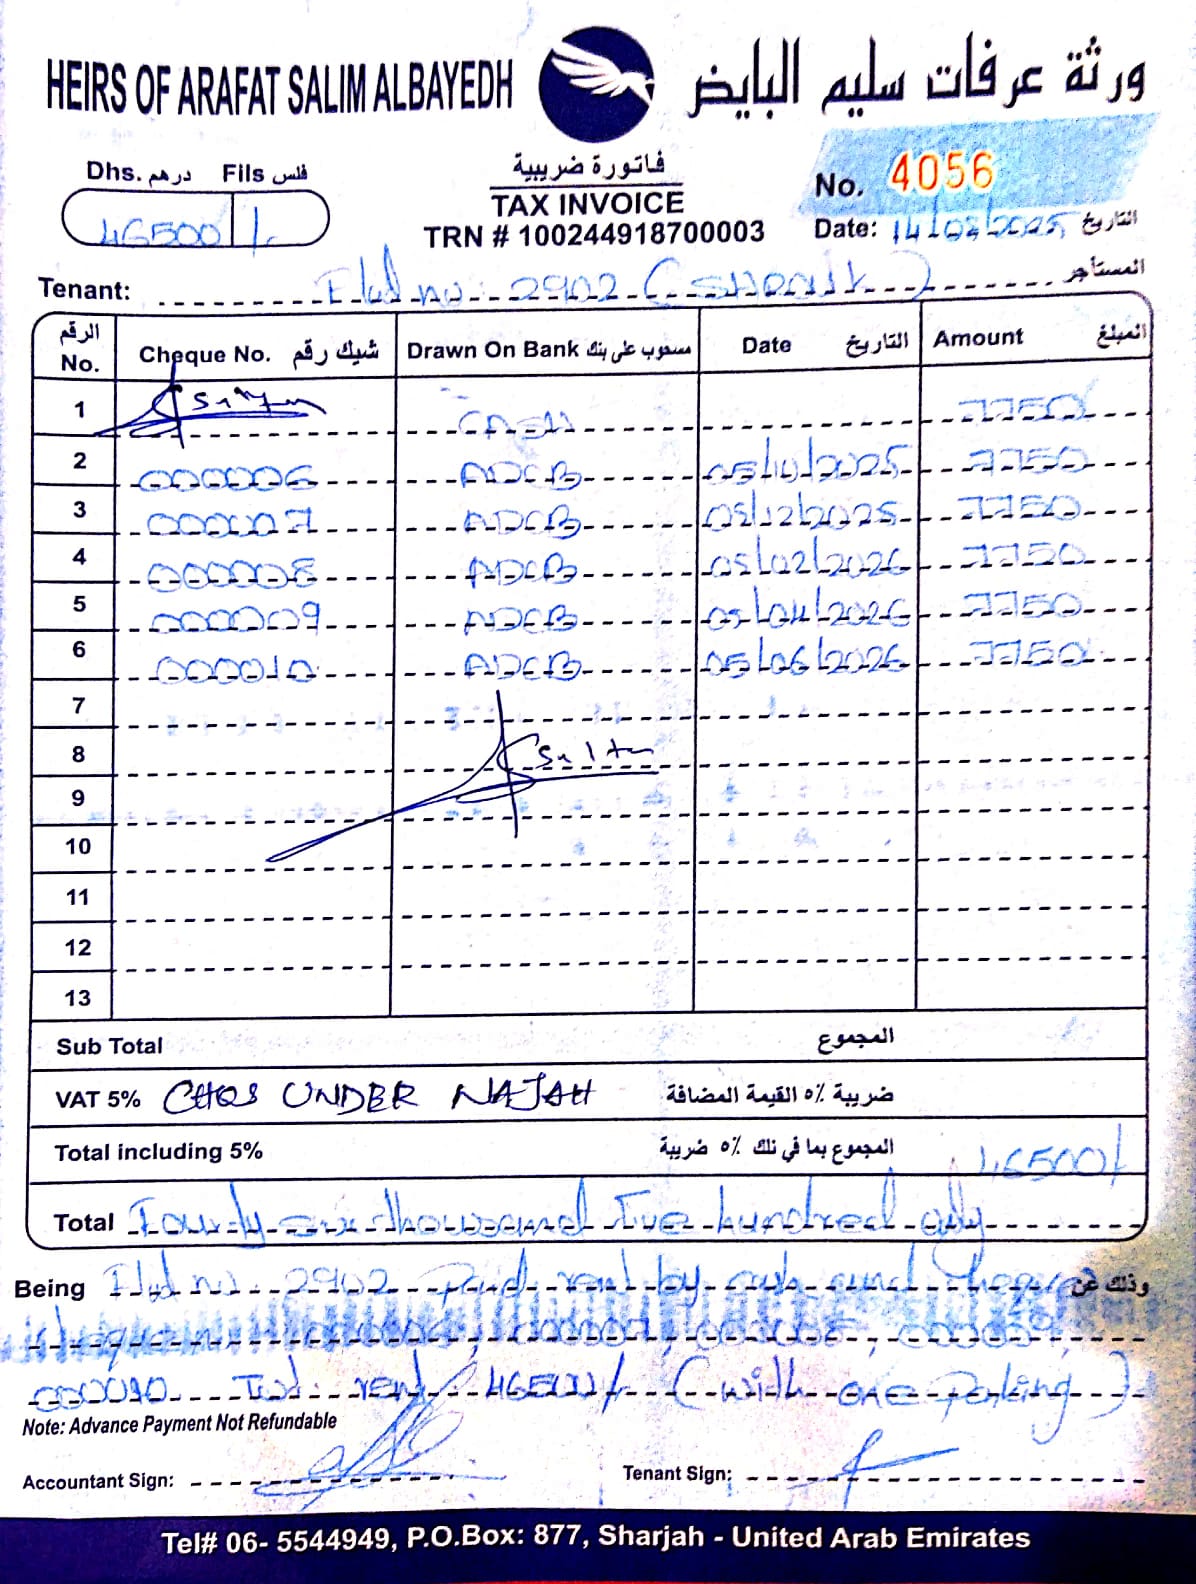 HEIRS OF ARAFAT SALIM ALBAYEDH ورثة عرفات سليم البايض
Dhs. درهم Fils فلس
46500 /-
فاتورة ضريبية
TAX INVOICE
TRN # 100244918700003
No. 4056
Date: 14/08/2025 التاريخ
Tenant: Flat no: 2902 ( ) المستأجر
الرقم No. Cheque No. شيك رقم Drawn On Bank مسحوب على بنك Date التاريخ Amount المبلغ
1 CASH 7750
2 000006 ADCB 05/10/2025 7750
3 000007 ADCB 05/12/2025 7750
4 000008 ADCB 05/02/2026 7750
5 000009 ADCB 05/04/2026 7750
6 000010 ADCB 05/06/2026 7750
7
8 Sultan
9
10
11
12
13
Sub Total المجموع
VAT 5% CHQS UNDER NAJAH ضريبة ٥% القيمة المضافة
Total including 5% المجموع بما في ذلك ٥% ضريبة 46500/
Total Fourty six thousand five hundred only
Being Flat no. 2902 Paid rent by cash and cheques وذلك عن
000008, 000009
000010 Total rent 46500/- (with one Parking)
Note: Advance Payment Not Refundable
Accountant Sign: Tenant Sign:
Tel# 06- 5544949, P.O.Box: 877, Sharjah - United Arab Emirates